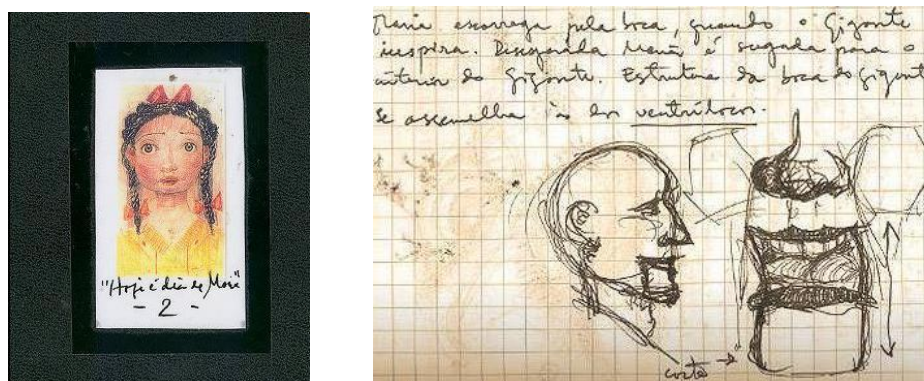 "Hoje é dia de Maria"
- 2 -
Maria escorrega pela boca, quando o Gigante
inspira. Disparada Maria é sugada para o
interior do gigante. Estrutura da boca do gigante
se assemelha às dos ventríloquos.
corte →